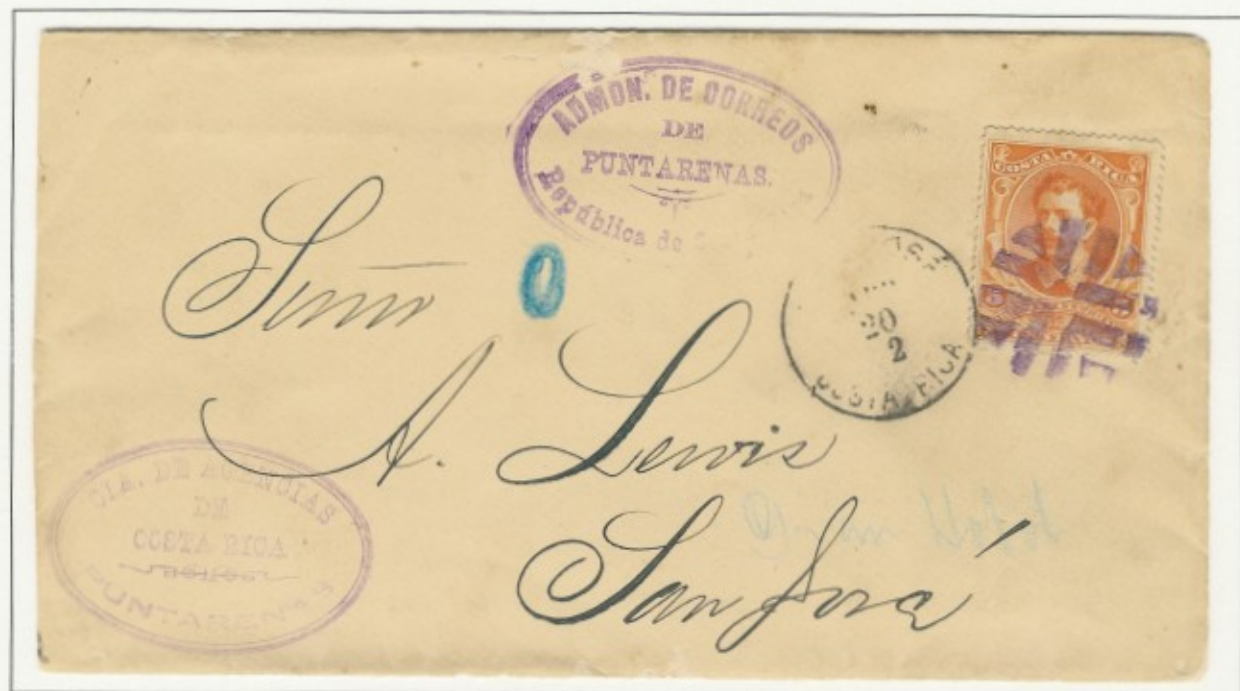 ADMON. DE CORREOS
DE
PUNTARENAS.
República de
COSTA RICA
5
20
2
COSTA RICA
Señor
0
A. Lewis
San José
CIA. DE AGENCIAS
DE
COSTA RICA
PUNTARENAS